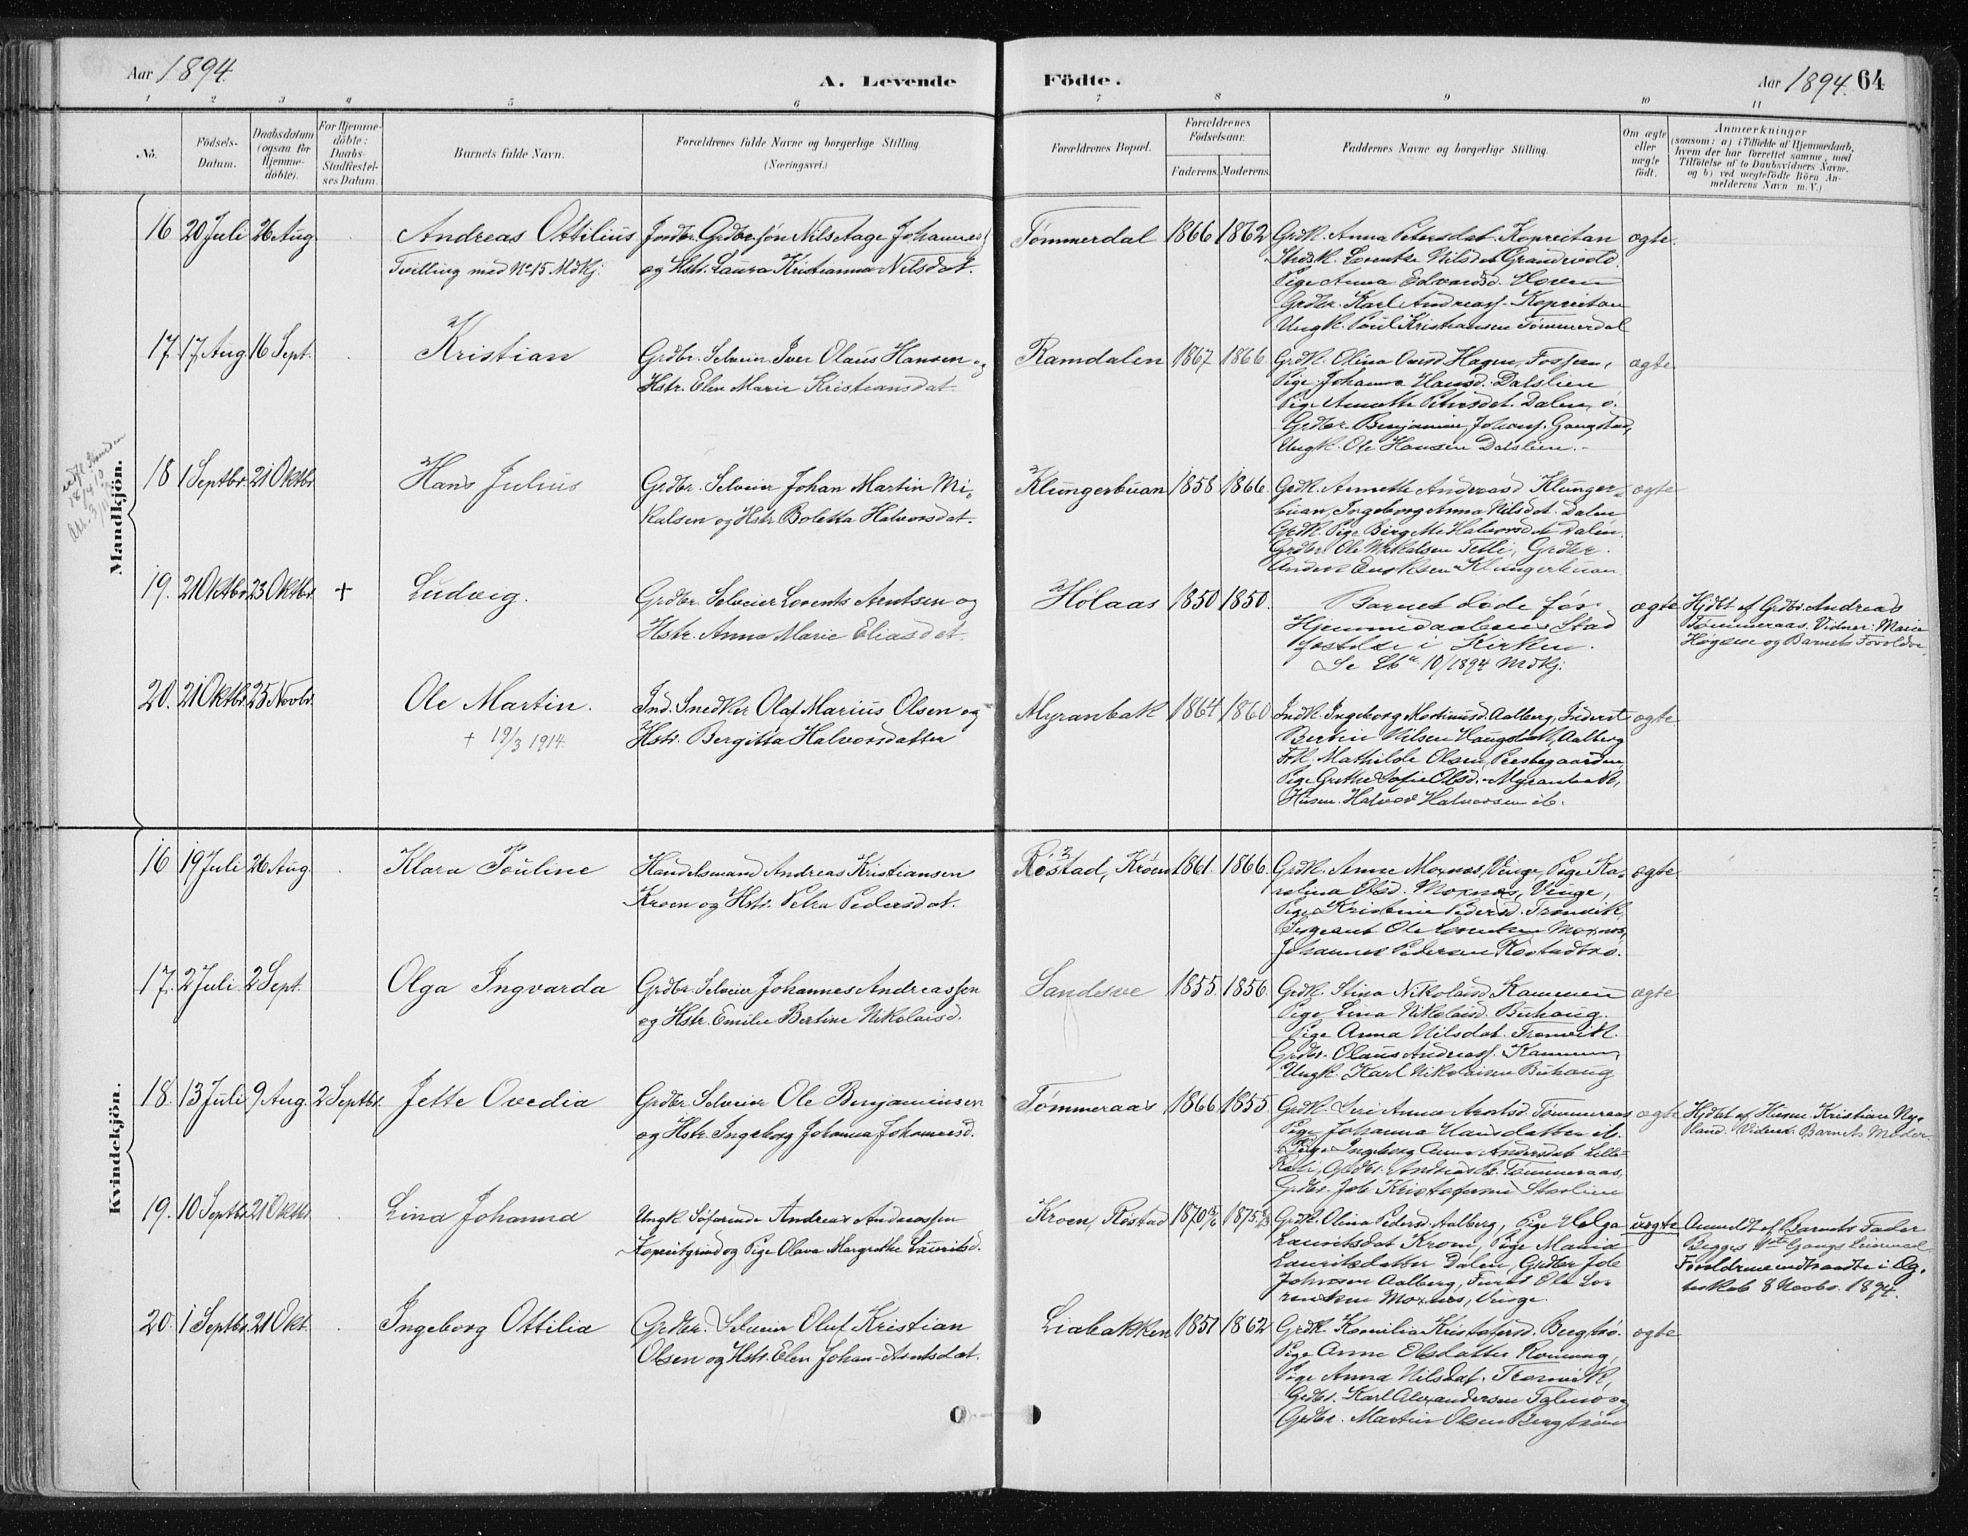 Aar 1894.
A. Levende Födte.
Aar 1894. 64
1 2 3 4 5 6 7 8 9 10 11
No.
Födsels-Datum.
Daabsdatum (ogsaa for Hjemme-döbte).
For Hjemme-döbte: Daabs-Stadfæstel-ses Datum.
Barnets fulde Navn.
Forældrenes fulde Navne og borgerlige Stilling.
(Næringsvei.)
Forældrenes Bopæl.
Forældrenes Födselsaar.
Faderens. Moderens.
Faddernes Navne og borgerlige Stilling.
Om ægte eller uægte födt.
Anmærkninger
(saasom: a) i Tilfælde af Hjemmedaab,
hvem der har forrettet samme, med
Tilföielse af to Daabsvidners Navne,
og b) ved uægtefödte Börn An-
melderens Navn m. V.)
Mandkjön.
16 20 Juli 26 Aug. Andreas Ottilius
Tvilling med No 15 Mdkj.
Jordbr. Grdbr.søn Nils Aage Johannes
og Hstr. Laura Kristianna Nilsdat.
Tømmerdal 1866 1862
Grdk. Anna Petersdat. Kopreitan
Lorentse Nilsdat Grandevold.
Pige Anna Edvardsd. Hoven
Grdbr. Karl Andreass. Kopreitan
Ungk. Poul Kristiansen Tømmerdal
ægte.
17. 17 Aug 16 Sept. Kristian
Grdbr. Selveier Iver Olaus Hansen og
Hstr. Elen Marie Kristiansdat.
Ramdalen 1867 1866
Grdk. Olina Hagen,
Pige Johanna Hansd. Dalslien
Pige Annette Petersdat. Dalen, ø.
Grdbr. Benjamin Johans. Gangstad,
Ungk. Ole Hansen Dalslien.
ægte
18 1 Septbr. 21 Oktbr. Hans Julius
Grdbr. Selveier Johan Martin Mi-
kalsen og Hstr. Boletta Halvorsdat.
Klungerbuan 1858 1866.
Grdk. Annette Andreasd Klunger-
buan, Ingeborg Anna Nilsdat. Dalen
Grdk. Pige Birgitte Halvorsdat Dalen.
Grdbr. Ole Mikalsen Tetli, Grdbr.
Anders Eriksen Klungerbuan
ægte
19. 21 Oktbr. 23 Oktbr. + Ludvig.
Grdbr. Selveier Lorents Arntsen og
Hstr. Anna Marie Eliasdat.
Holaas 1850 1850.
Barnet døde før
Hjemmedaabens Stad
fæstelse i Kirken.
Se No 10/1894 Mdkj.
ægte
Hjdbt af Grdbr. Andreas
Tømmeraas. Vidner: Marie
Høgsve og Barnets Forældre.
20. 21 Oktbr. 25 Novbr. Ole Martin.
+ 19/3 1914.
Ind. Snedker Olaf Marius Olsen og
Hstr. Bergitta Halvorsdatter
Myranbak 1864 1860
Indk. Ingeborg Martinusd. Aalberg, Inderst
Bertin Nilsen Haugstad, Aalberg
Frk. Mathilde Olsen, Prestegaarden,
Pige Grethe Sofie Olsd. Myranbak,
Husm. Halvor Halvorsen ib.
ægte.
Kvindekjön.
16 19 Juli 26 Aug. Klara Pouline
Handelsmand Andreas Kristiansen
Kroen og Hstr. Petra Pedersdat.
Røstad, Kroen 1861 1866.
Grdk. Anne Moxnæs, Vinge, Pige Ka-
rolina Olsd. Moxnæs, Vinge,
Pige Kristine Pedersd. Tronvik,
Sergeant Ole Lorentsen Moxnæs,
Johannes Pedersen Røstadtrø.
ægte
17. 2 Juli. 2 Sept. Olga Ingvarda
Grdbr. Selveier Johannes Andreassen
og Hstr. Emilie Bertine Nikolaisd.
Sandsve 1855 1856
Grdk. Stina Nikolaisd Kammen
Pige Lina Nikolaisd. Buhaug.
Pige Anna Nilsdat. Tronvik.
Grdbr. Olaus Andreass. Kammen,
Ungk. Karl Nikolaisen Buhaug
ægte
18. 13 Juli 9 Aug. 2 Septbr. Jette Ovedia
Grdbr. Selveier Ole Benjaminsen
og Hstr. Ingeborg Johanna Johannesd.
Tømmeraas 1866 1855
Grdk. Anna Arntsd. Tømmeraas
Pige Johanna Hansdatter ib.
Pige Ingeborg Anna Andersdat. Lille-
Grdbr. Andreas Tømmeraas,
Grdbr. Job Kristofersen
ægte
Hjdbt af Husm. Kristian Ny-
land. Vidne: Barnets Moder.
19. 10 Septbr. 21 Oktbr. Lina Johanna
Ungk. Søfarende Andreas Andreassen
Kopreitgrind og Pige Olava Margrethe Lauritsd.
Kroen, Røstad 1870 1875
Grdk. Olina Pedersd. Aalberg, Pige Helga
Lauritsdat Kroen, Pige Maria
Lauritsdatter Dalen, Grdbr Job
Johnsen Aalberg, Ole Lo-
rentsen Moxnæs, Vinge.
uægte
Anmeldt af Barnets Fader
Begges 1ste Gangs Leiermaal.
Forældrene indtraadte i Æg-
teskab 8 Novbr. 1894.
20. 1 Septbr. 21 Okt. Ingeborg Ottilia
Grdbr. Selveier Oluf Kristian
Olsen og Hstr. Elen Johan. Arntsdat.
Liabakken 1851 1862
Grdk. Kornilia Kristofersd. Bergtrø.
Pige Anne Olsdatter
Pige Anna Nilsdat. Tronvik,
Grdbr. Karl Alexandersen
Grdbr. Martin Olsen
ægte